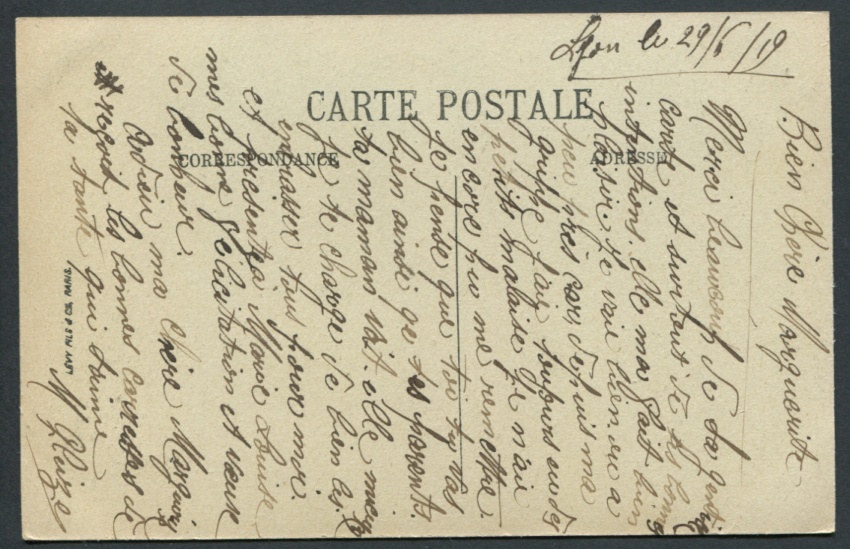 Lyon le 29/5/19
CARTE POSTALE
CORRESPONDANCE
ADRESSE
Bien Chère Marguerite
Merci beaucoup de ta gentille
carte et surtout de tes bonnes
intentions. elle ma fait bien
plaisir. Je vais bien ou a
peu près car depuis ma
grippe j'ai toujours eu des
petits malaise je n'ai
encore pu me remettre.
Je pense que toi tu vas
bien ainsi qe tes parents.
ta maman vat. elle mieux
Je te charge de bien les
embrasser tous pour moi.
et présente a Marie Louise
mes bonne félicitation et vœux
de bonheur.
Adieu ma chère Marguerite
reçoit les bonnes caresses de
ta tante qui t'aime
M Gloize
LEVY FILS & CIE, PARIS